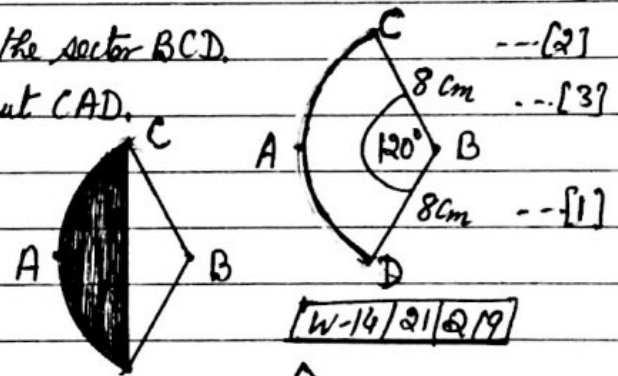 the sector BCD. ---[2]
ut CAD. ---[3]
C
8 cm
A 120° B
8cm ---[1]
D
C
A B
W-14/21/Q/9